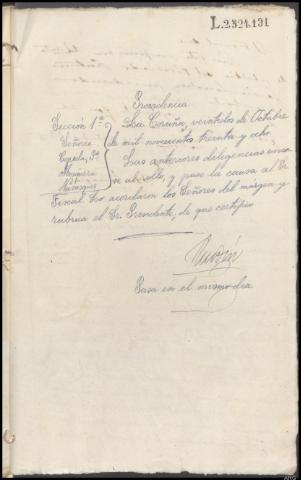 L.2324.131
Providencia
Sección 1ª La Coruña, veintidos de Octubre
Señores de mil novecientos treinta y ocho.
Las anteriores diligencias unan
se al rollo, y pase la causa al Sr.
Fiscal. Lo acordaron los Señores del márgen y
rubrica el Sr. Presidente, de que certifico
Pasa en el mismo dia